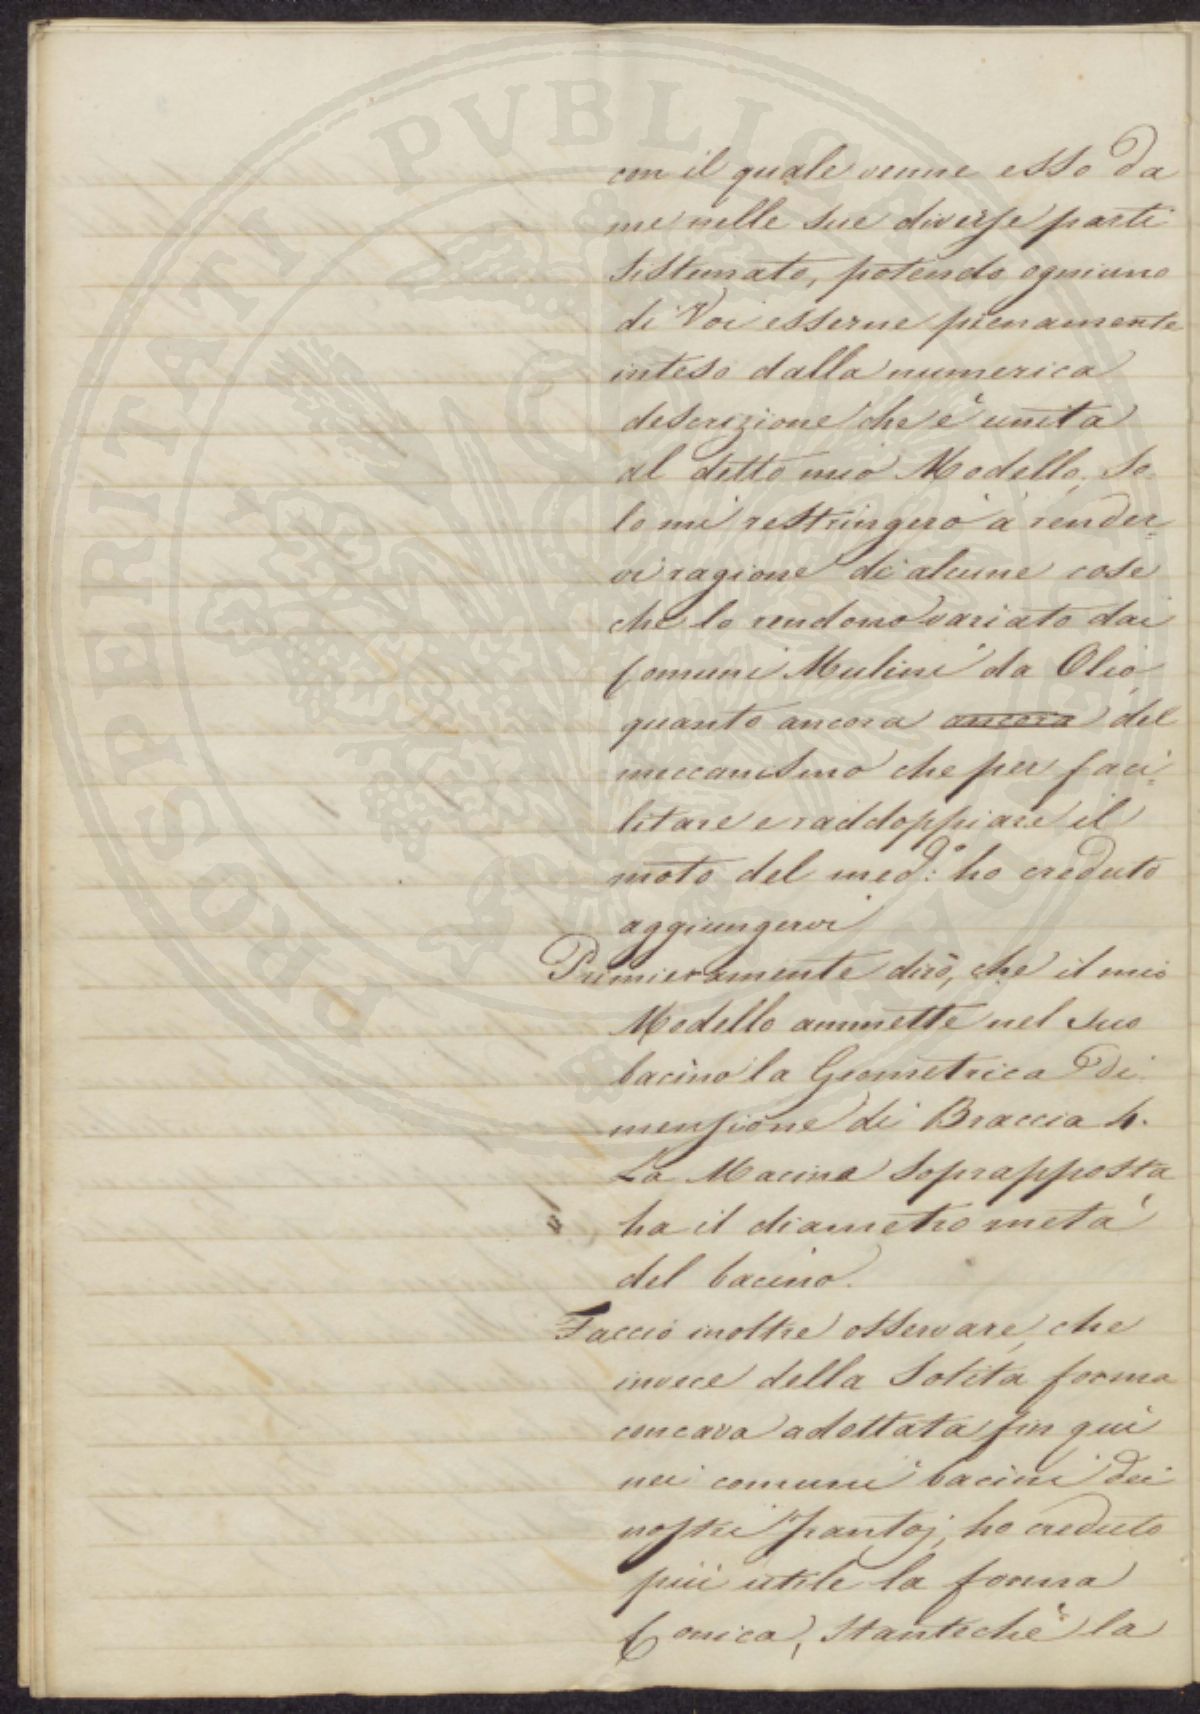 con il quale venne esso da
me nelle sue diverse parti
sistemato, potendo ogniuno
di Voi esserne pienamente
inteso dalla numerica
descrizione che è unita
al detto mio Modello, So
lo mi restringerò à render-
vi ragione di alcune cose
che lo rendono variato dai
Comuni Mulini da Olio,
quanto ancora ancora del
meccanismo che per faci-
litare e raddoppiare il
moto del med:º ho creduto
aggiungervi
Primieramente dirò, che il mio
Modello ammette nel suo
bacino la Geometrica Di
mensione di Braccia 4.
La Macina soprapposta
ha il diametro metà
del bacino.
Faccio inoltre osservare, che
invece della Solita forma
concava adottata fin qui
nei comuni bacini dei
nostri frantoj, ho creduto
più utile la forma
Conica, stanteche la
PROSPERITATI PVBLICAE